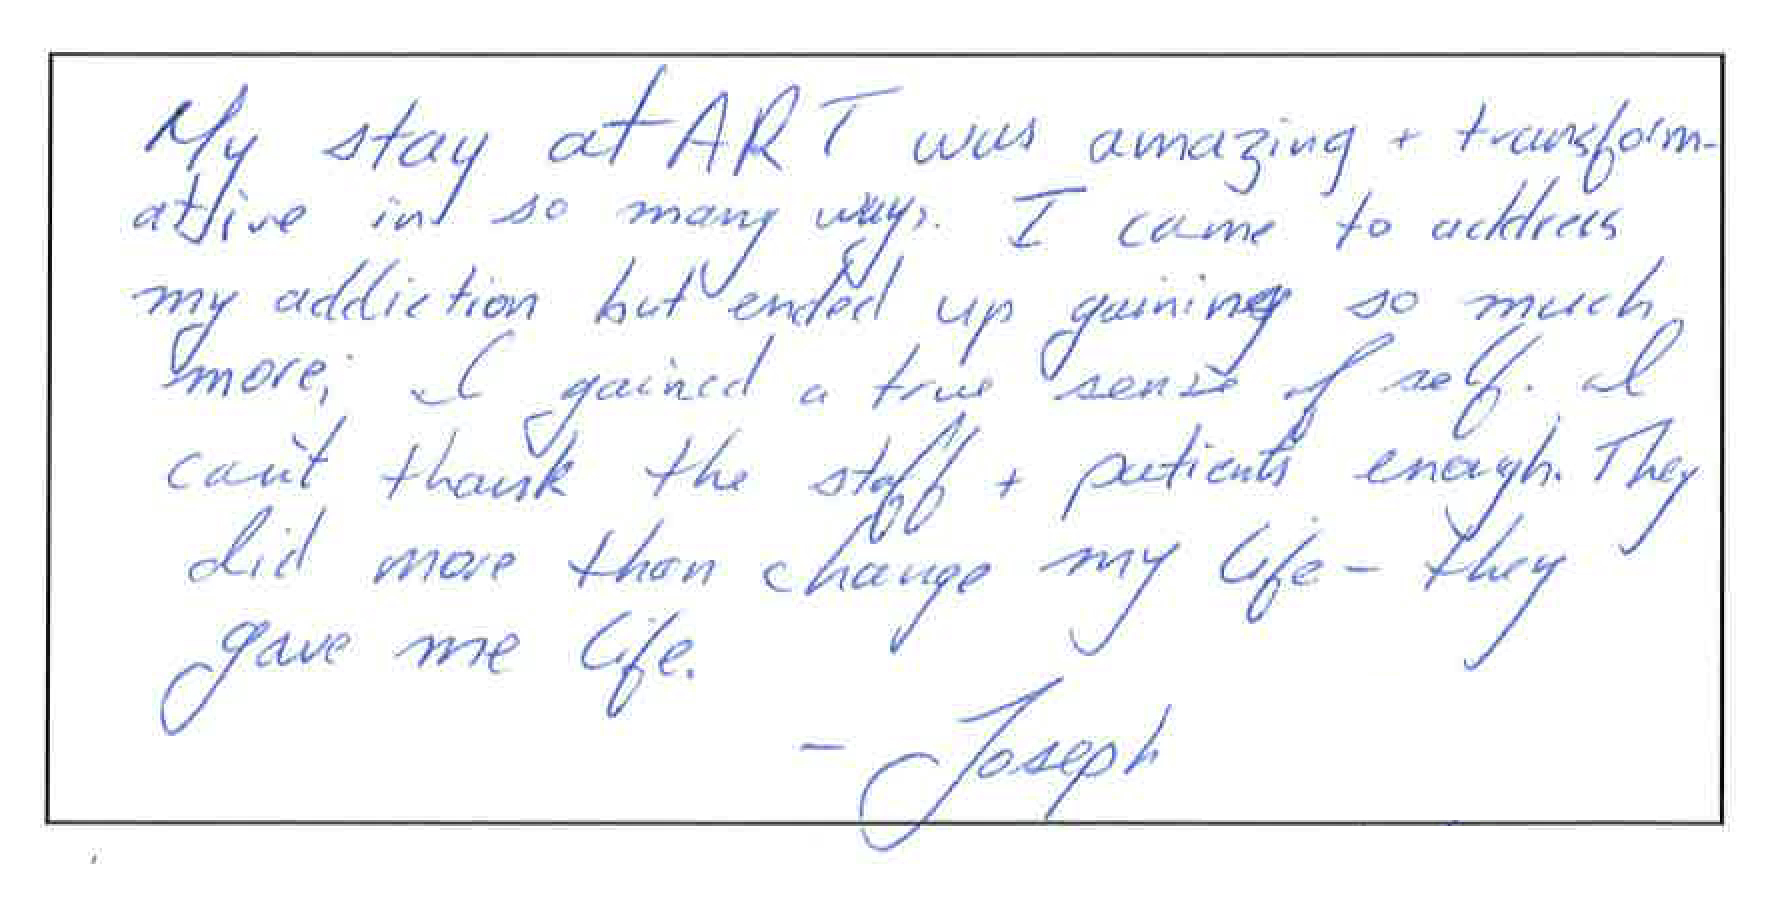 My stay at ART was amazing + transform-
ative in so many ways. I came to address
my addiction but ended up gaining so much
more; I gained a true sense of self. I
can't thank the staff + patients enough. They
did more than change my life - they
gave me life.
- Joseph